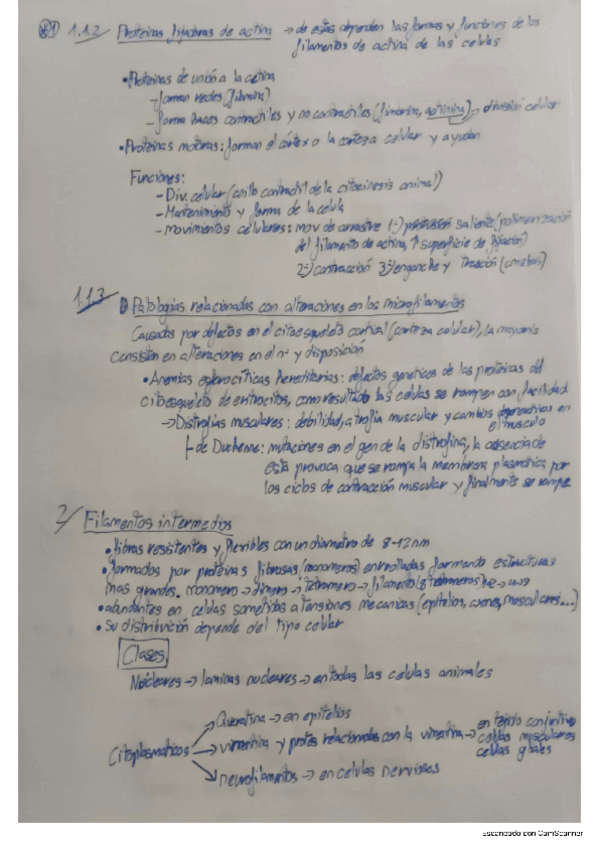 1.1.2 Proteínas fijadoras de actina → de estas dependen las formas y funciones de los
filamentos de actina de las celulas
• Proteínas de unión a la actina
- forman redes (filamina)
- forma haces contractiles y no contractiles (fimbrina, actinina) → división celular
• Proteínas motoras: forman el córtex o la corteza celular y ayudan
Funciones:
- Div. celular (anillo contractil de la citocinesis animal)
- Mantenimiento y forma de la celula
- Movimientos celulares: mov de arrastre 1º) saliente (polimerización
del filamento de actina, ↑ superficie de fijación)
2º) contracción 3º) enganche y tracción
1.1.3 Patologías relacionadas con alteraciones en los microfilamentos
Causadas por defectos en el citoesqueleto cortical (corteza celular), la mayoría
consisten en alteraciones en el nº y disposición
• Anemias esferocíticas hereditarias: defectos geneticos de las proteínas del
citoesqueleto de eritrocitos, como resultado las celulas se rompen con facilidad
→ Distrofias musculares: debilidad, atrofia muscular y cambios degenerativos en
el musculo
de Duchenne: mutaciones en el gen de la distrofina, la ausencia de
esta provoca que se rompa la membrana plasmatica por
los ciclos de contracción muscular y finalmente se rompe
2/ Filamentos intermedios
• fibras resistentes y flexibles con un diametro de 8-12 nm
• formados por proteínas fibrosas (monomeros) enrolladas formando estructuras
mas grandes. monomero → dimero → tetramero → filamento (8 tetrameros)
• abundantes en celulas sometidas a tensiones mecanicas (epitelios, axones, musculares...)
• su distribución depende del tipo celular
Clases
Nucleares → laminas nucleares → en todas las celulas animales
Citoplasmaticos
→ Queratina → en epitelios
→ vimentina y protes relacionadas con la vimentina → en tejido conjuntivo
celulas musculares
celulas gliales
→ neurofilamentos → en celulas nerviosas
Escaneado con CamScanner